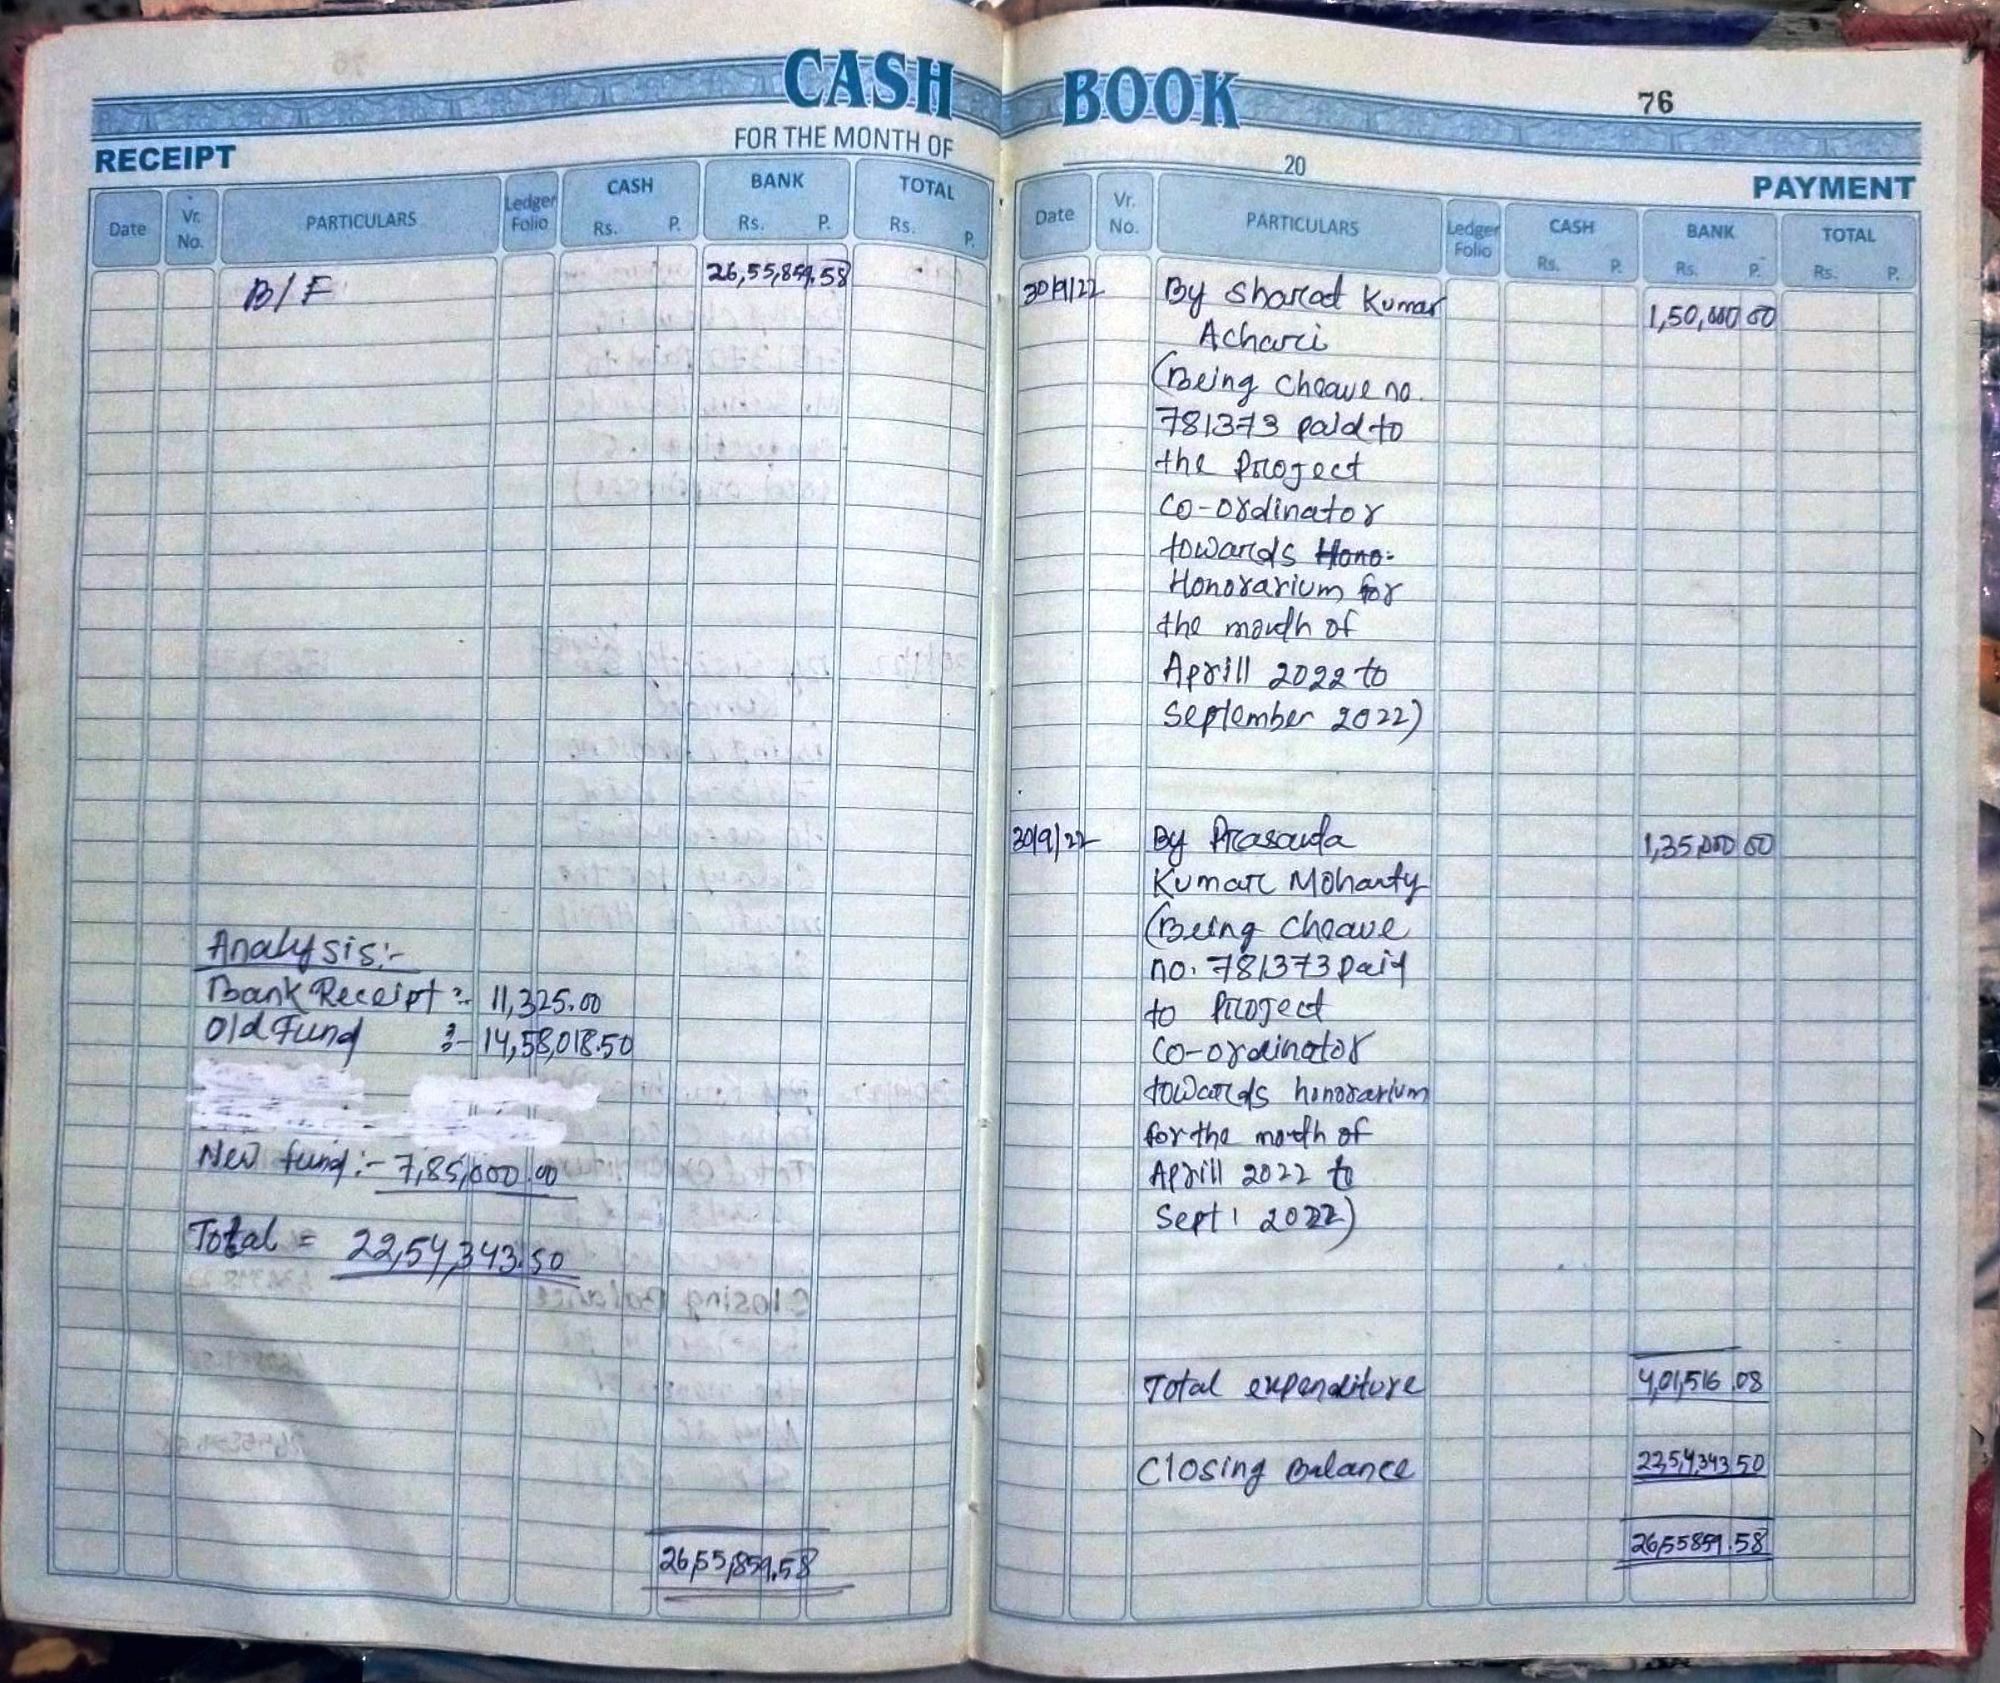 CASH BOOK
76
FOR THE MONTH OF
20
RECEIPT
PAYMENT
Date Vr. No. PARTICULARS Ledger Folio CASH Rs. P. BANK Rs. P. TOTAL Rs. P.
B/F 26,55,859.58
Analysis:-
Bank Receipt :- 11,325.00
Old Fund :- 14,58,018.50
New fund:- 7,85,000.00
Total = 22,54,343.50
26,55,859.58
Date Vr. No. PARTICULARS Ledger Folio CASH Rs. P. BANK Rs. P. TOTAL Rs. P.
30/9/22 By Sharat Kumar 1,50,000 00
Achari
(Being Cheave no.
781373 paid to
the Project
Co-ordinator
towards Hono-
Honorarium for
the month of
Aprill 2022 to
September 2022)
30/9/22 By Prasanta 1,35,000 00
Kumar Mohanty
(Being Cheave
no. 781373 paid
to Project
Co-ordinator
towards honorarium
for the month of
Aprill 2022 to
Sept. 2022)
Total expenditure 4,01,516.08
Closing Balance 22,54,343 50
26,55859.58